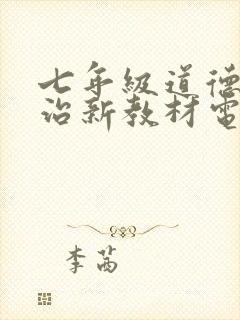 七年级道德
治新教材电
李茜